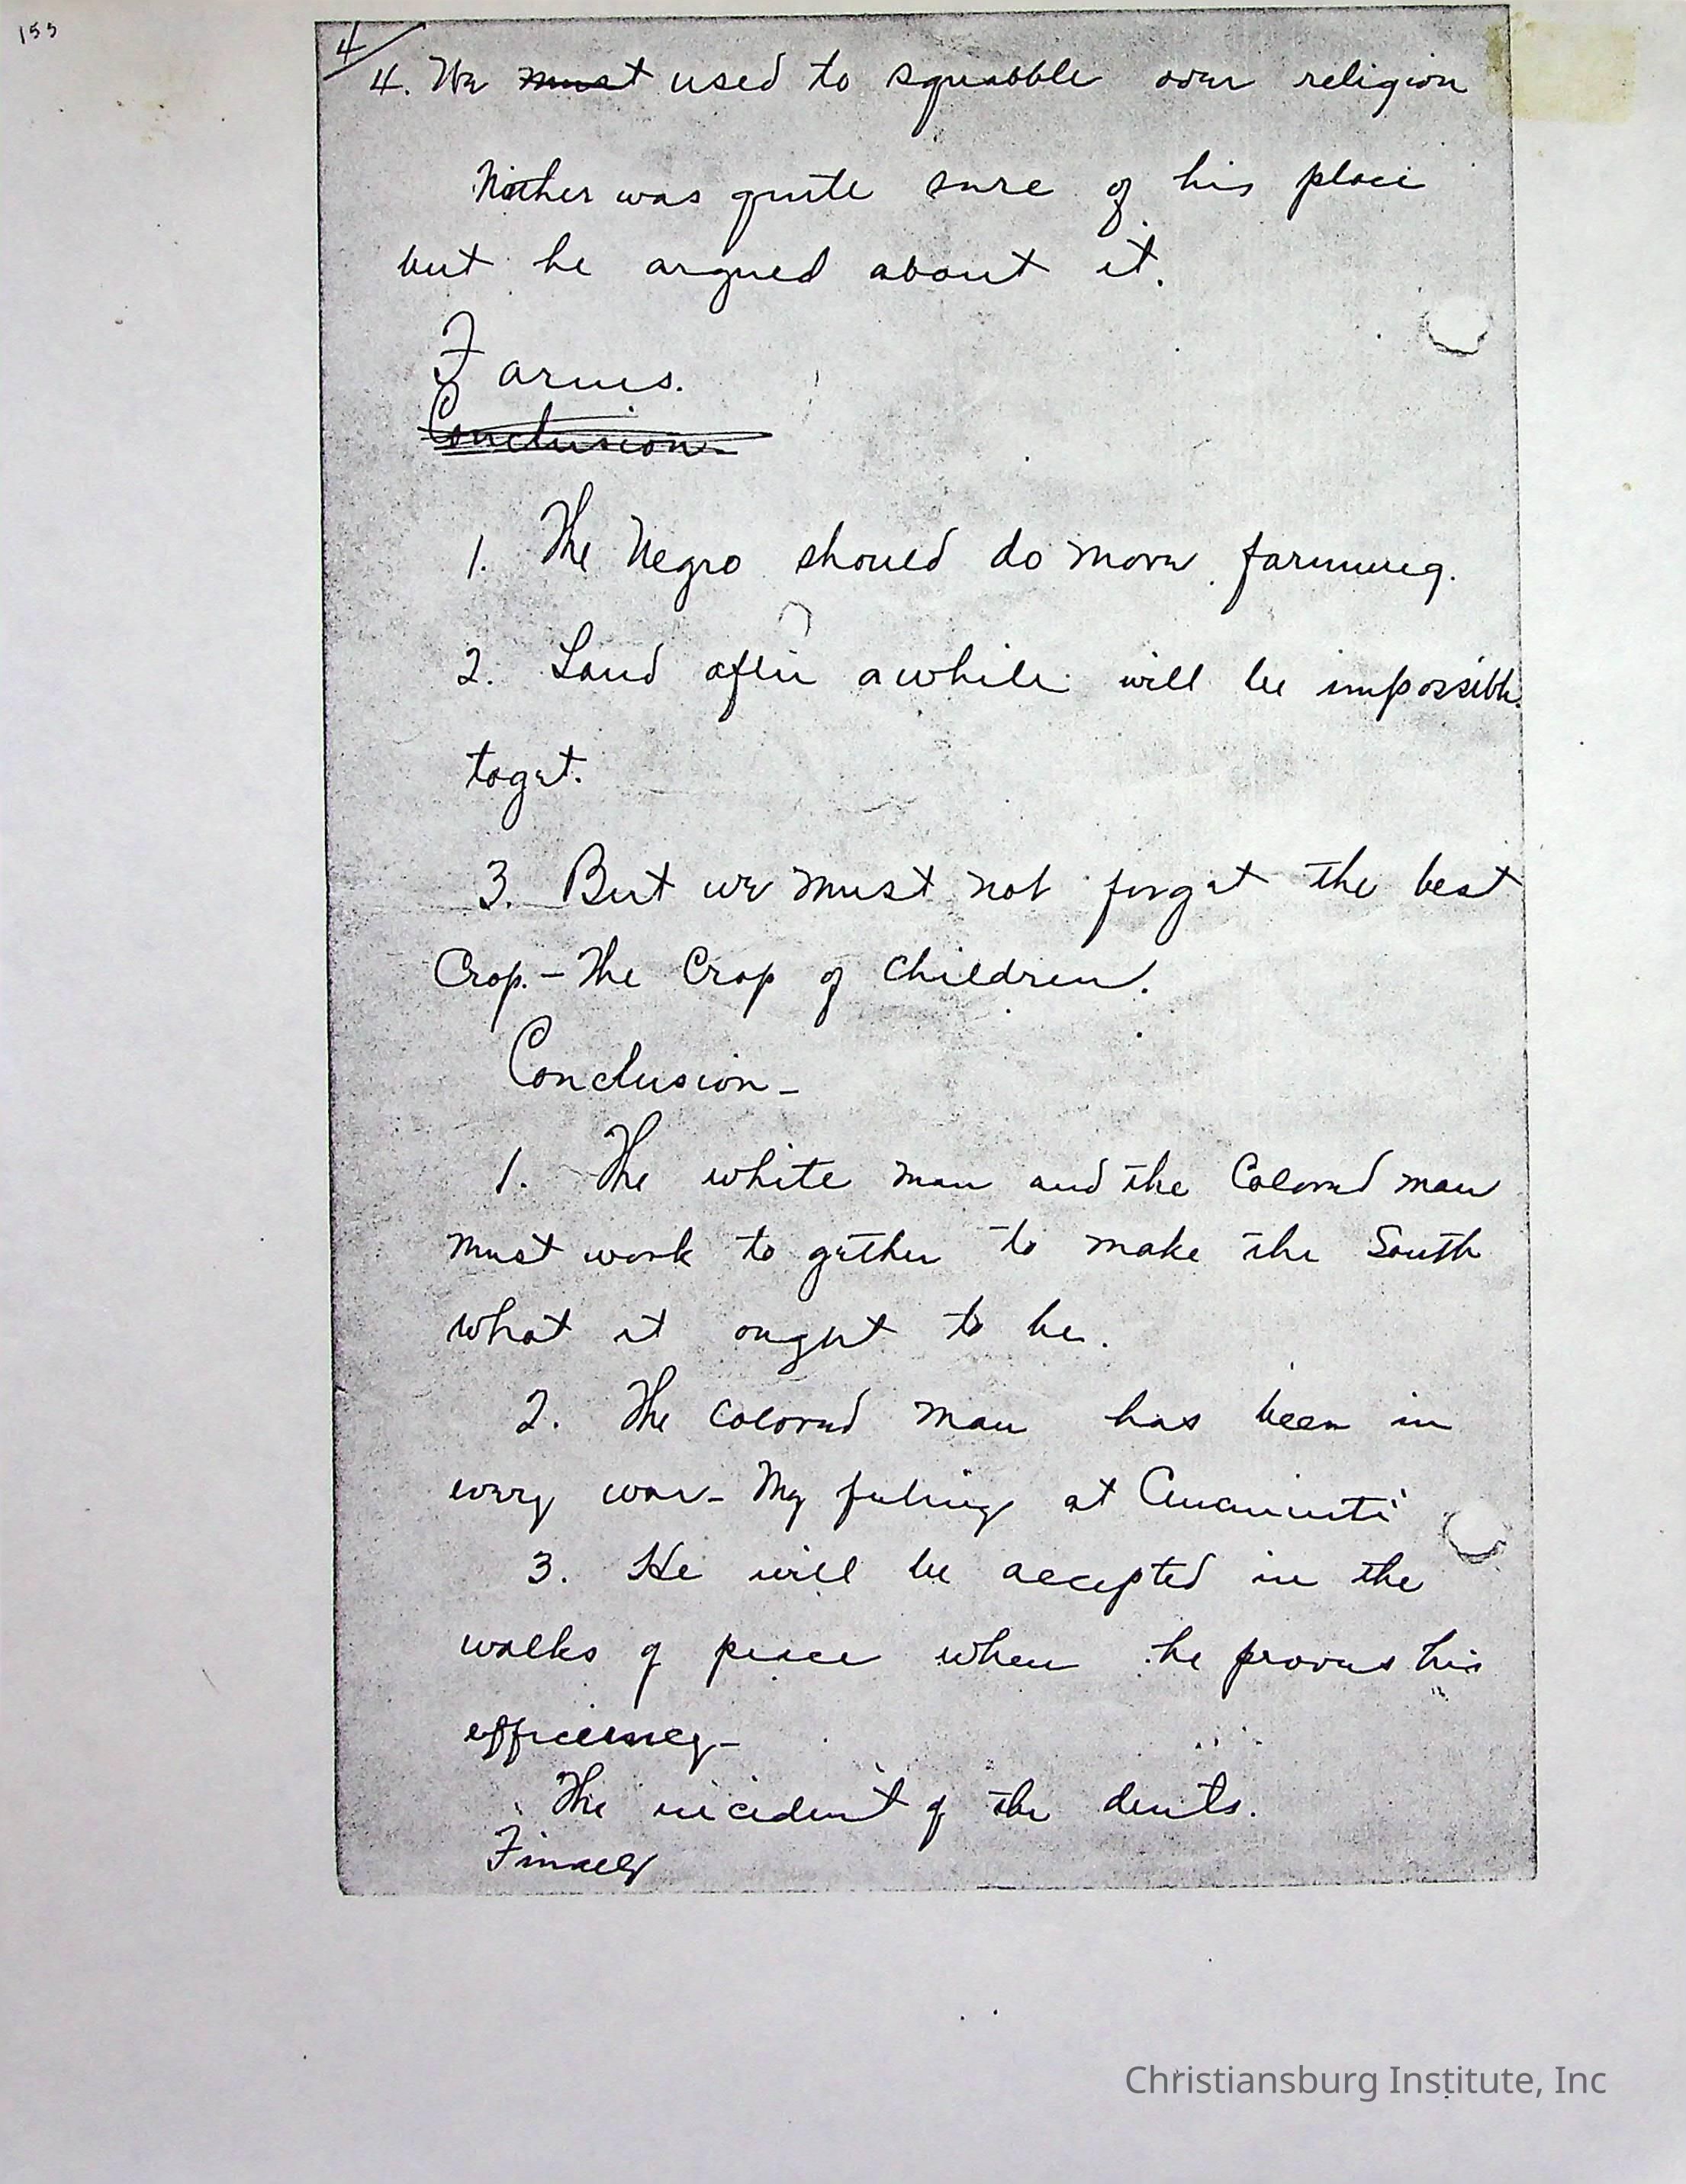 155
4
4. We must used to squabble over religion
Neither was quite sure of his place
but he argued about it.
Farms.
Conclusion-
1. The Negro should do more farming.
2. Land after awhile will be impossible
to get.
3. But we must not forget the best
Crop. - The Crop of Children.
Conclusion-
1. The white man and the Colored man
must work to gether to make the South
what it ought to be.
2. The Colored man has been in
every war - My feelings at Cincinnati
3. He will be accepted in the
walks of peace when he proves his
efficiency-
The incident of the
Finally
Christiansburg Institute, Inc